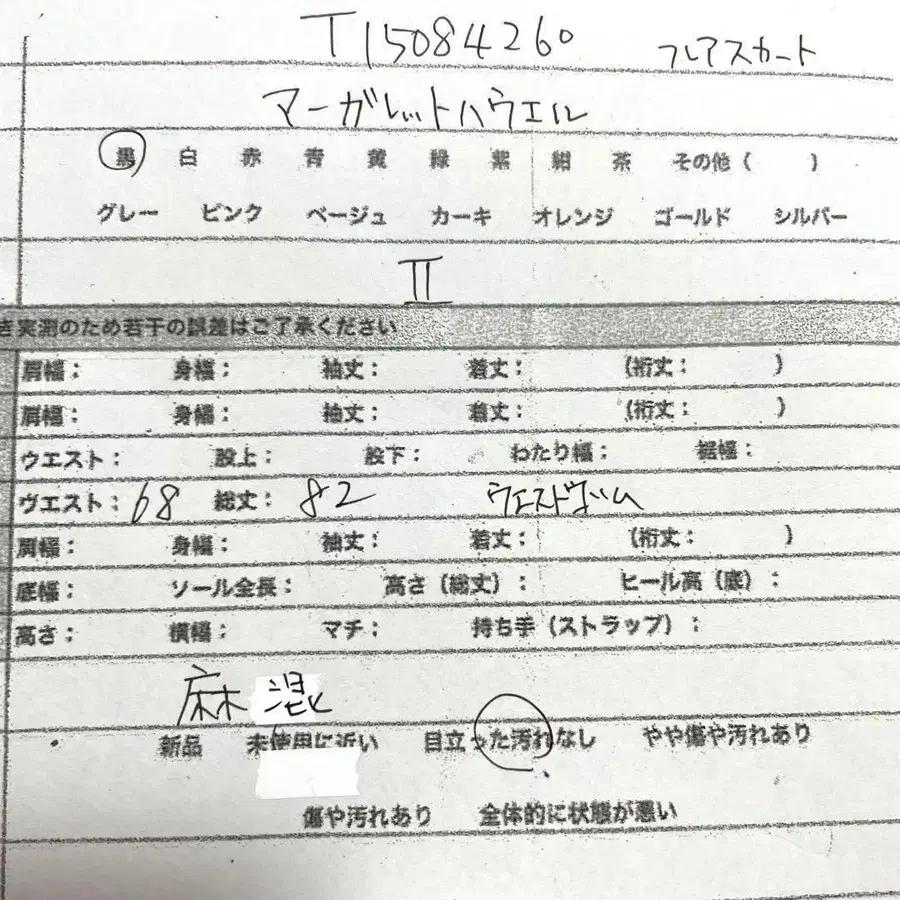 T15084260 フレアスカート
マーガレットハウエル
黒 白 赤 青 黄 緑 紫 紺 茶 その他（　　）
グレー ピンク ベージュ カーキ オレンジ ゴールド シルバー
II
き実測のため若干の誤差はご了承ください
肩幅： 身幅： 袖丈： 着丈： （裄丈：　　）
肩幅： 身幅： 袖丈： 着丈： （裄丈：　　）
ウエスト： 股上： 股下： わたり幅： 裾幅：
ウエスト：68 総丈：82 ウエストゴム
肩幅： 身幅： 袖丈： 着丈： （裄丈：　　）
底幅： ソール全長： 高さ（総丈）： ヒール高（底）：
高さ： 横幅： マチ： 持ち手（ストラップ）：
麻混
新品 未使用に近い 目立った汚れなし やや傷や汚れあり
傷や汚れあり 全体的に状態が悪い